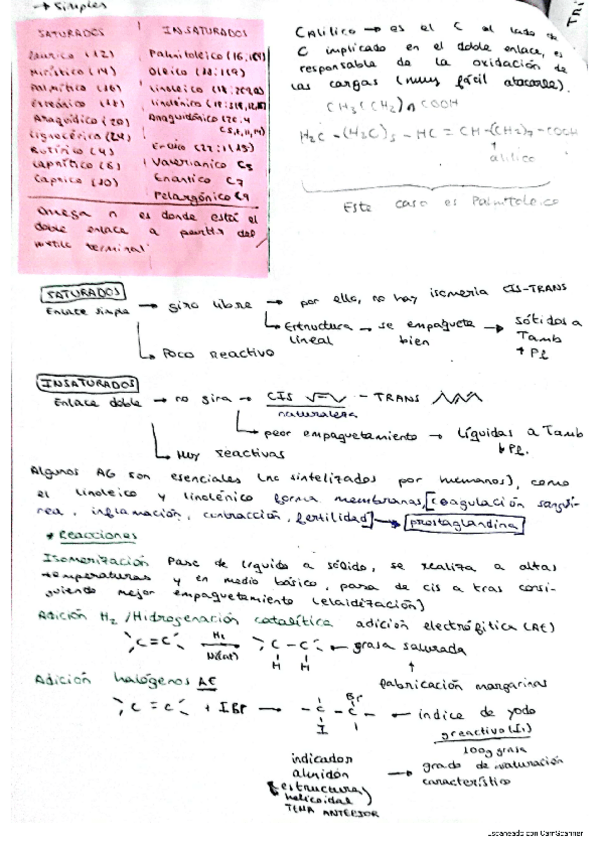 → Simples
SATURADOS
Laurico (12)
Mirístico (14)
Palmítico (16)
Araquidico (20)
Lignocérico (24)
Butírico (4)
Caprico (10)
INSATURADOS
Palmitoleico (16:1Δ9)
Oleico (18:1Δ9)
Linoleico
Linolénico
Araquidónico (20:4
Erúcico
Valerianico C5
Enantico C7
Pelargónico C9
Omega n es donde está el
doble enlace a partir del
metilo terminal
C Alílico → es el C al lado de
C implicado en el doble enlace, es
responsable de la oxidación de
las cargas (muy fácil atacarle).
CH3(CH2)nCOOH
H3C-(H2C)5-HC=CH-(CH2)7-COOH
↑
alílico
Este caso es Palmitoleico
TRI
SATURADOS
Enlace simple → giro libre → por ello, no hay isomeria CIS-TRANS
Estructura lineal → se empaqueta bien → Sólidos a Tamb
↑Pf
Poco reactivo
INSATURADOS
Enlace doble → no gira → CIS - TRANS
naturaleza
peor empaquetamiento → líquidas a Tamb
↓Pf.
Muy reactivas
Algunos AG son esenciales (no sintetizados por humanos), como
el linoleico y linolénico forma membranas, [coagulación sanguí-
nea, inflamación, contracción, fertilidad] → prostaglandina
* Reacciones
Isomerización Pasa de líquido a sólido, se realiza a altas
temperaturas y en medio básico, pasa de cis a tras consi-
guiendo mejor empaquetamiento (elaidización)
Adición H2 /Hidrogenación catalítica adición electrófílica (AE)
C=C H2 Ni(cat) C-C ← grasa saturada
H H
↑
fabricación margarinas
Adición halógenos AE
C=C + IBr → -C-C- ← índice de yodo
Br
I
g reactivo (I2)
100g grasa
indicador
almidón
(estructura
helicoidal)
TEMA ANTERIOR
→ grado de insaturación
característico
Escaneado con CamScanner